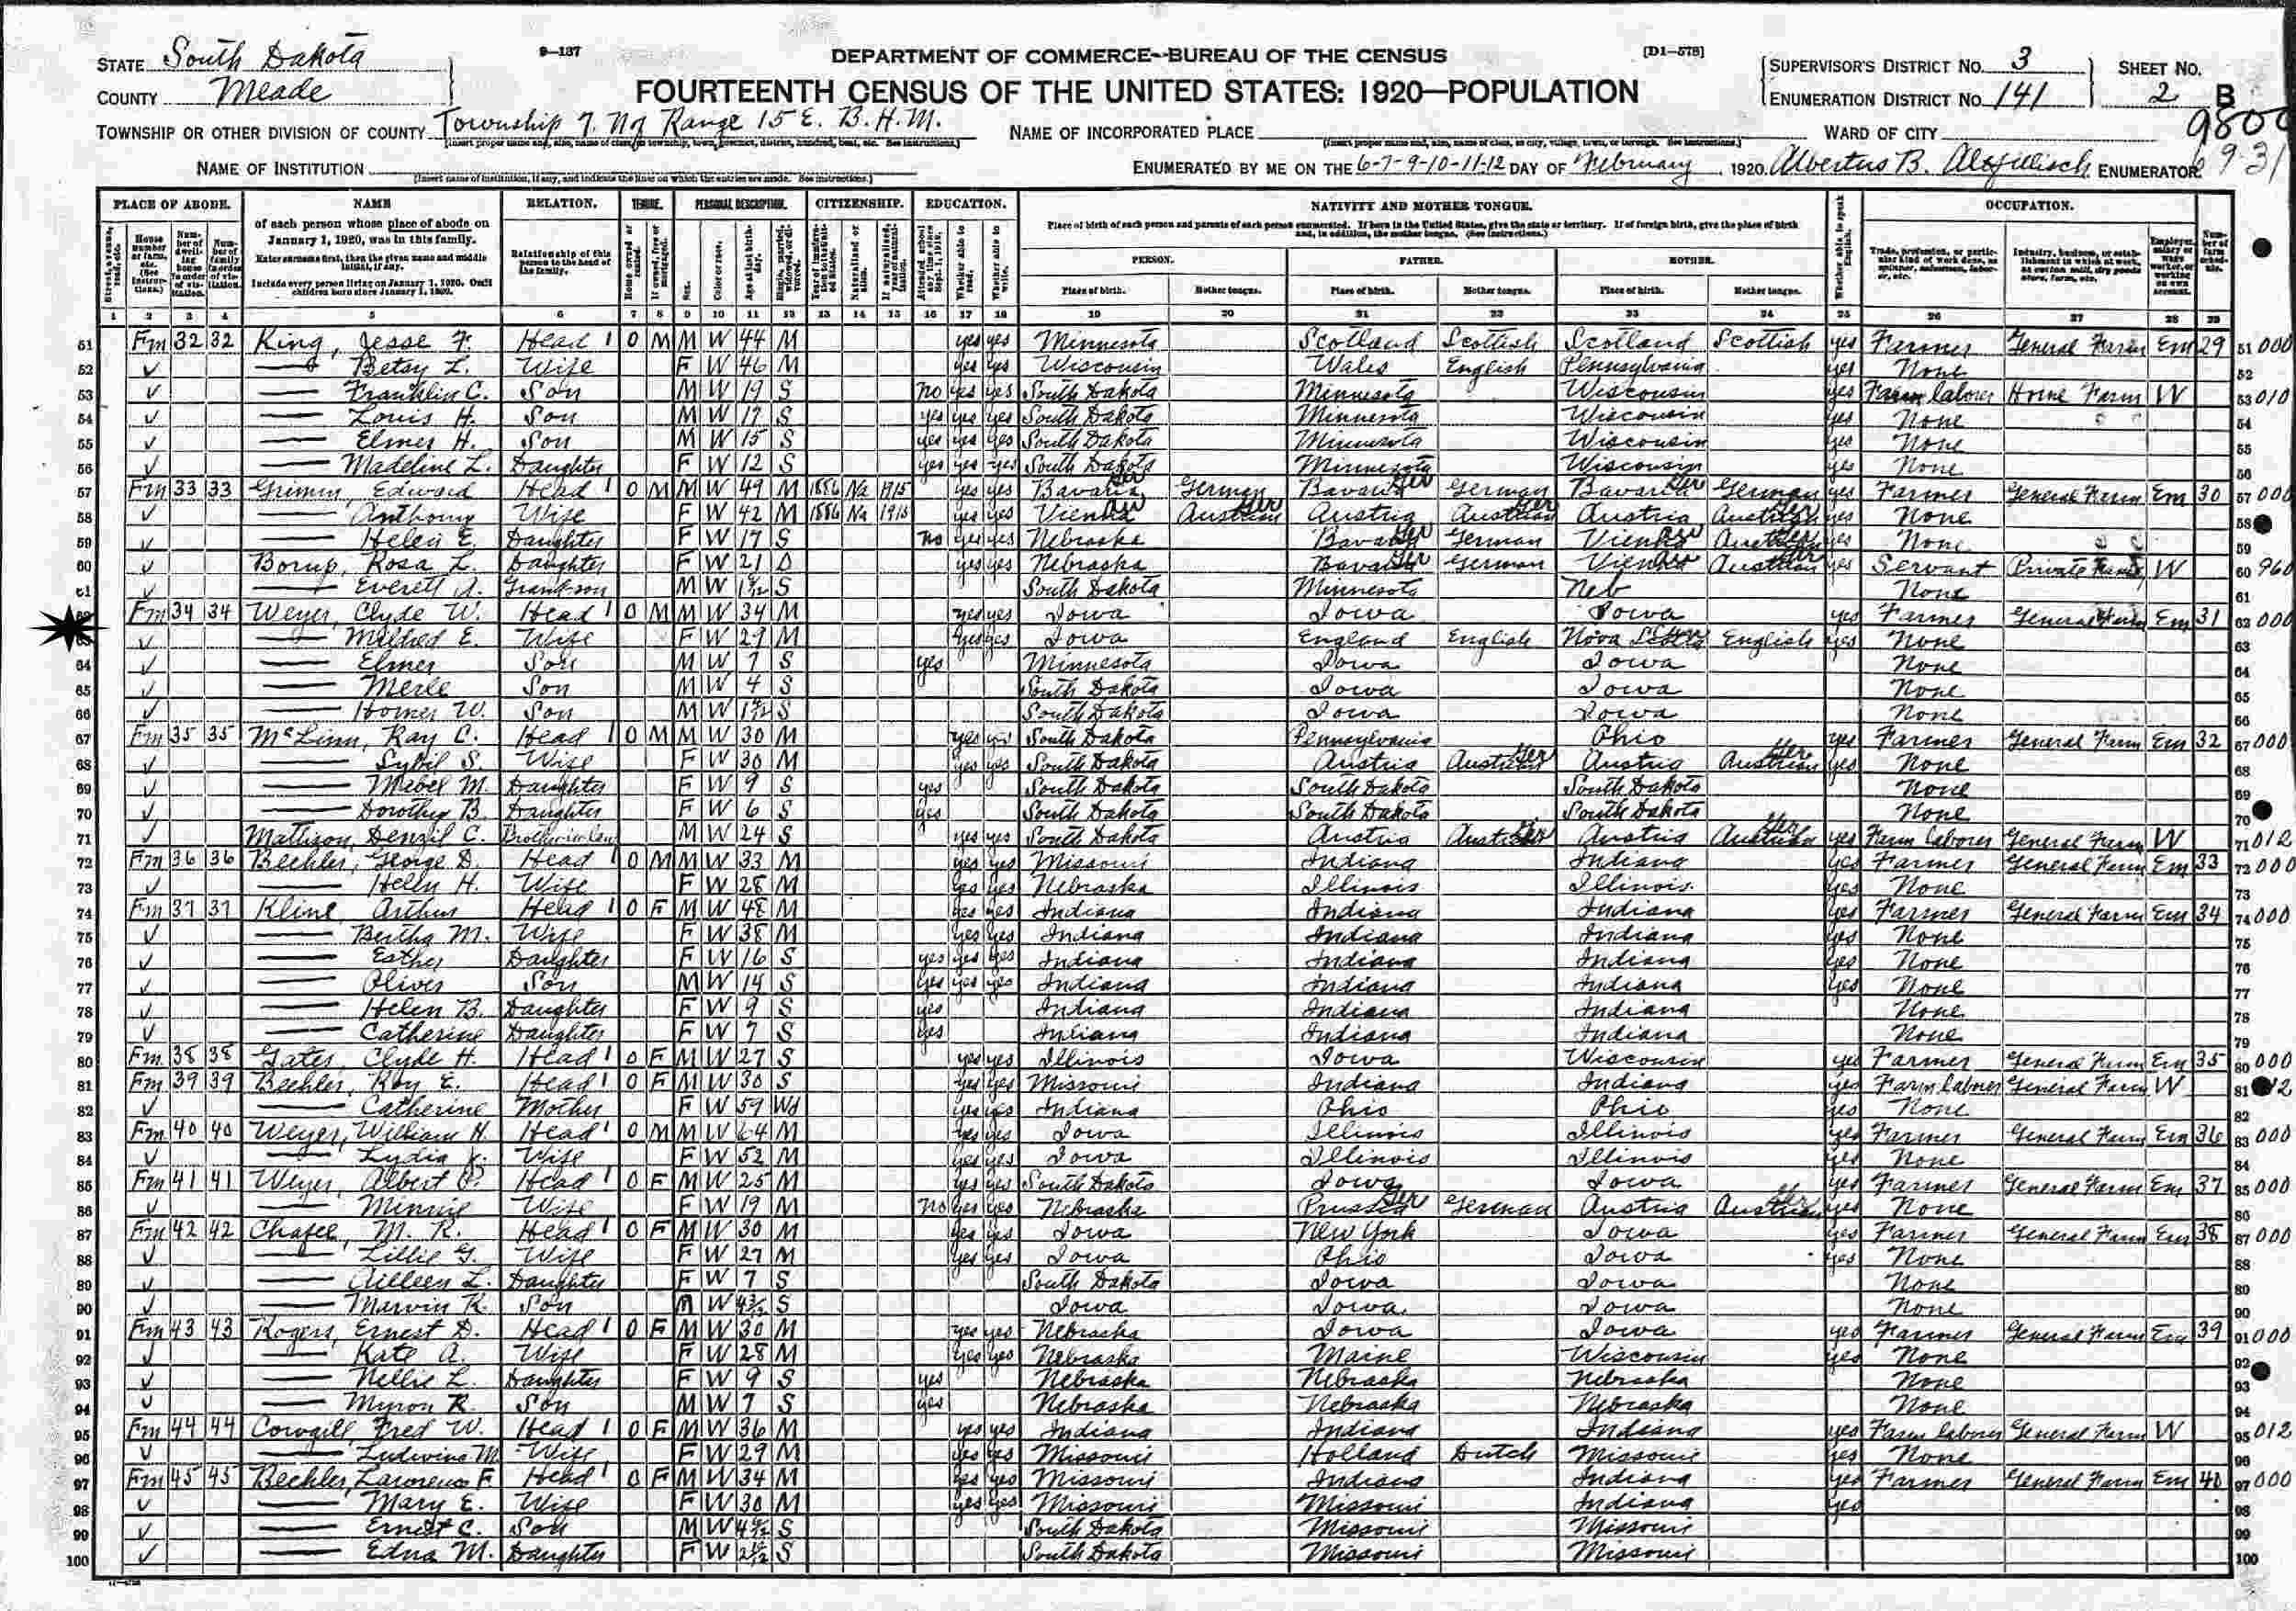 STATE South Dakota
COUNTY Meade
9-137
DEPARTMENT OF COMMERCE-BUREAU OF THE CENSUS
[D1-578]
FOURTEENTH CENSUS OF THE UNITED STATES: 1920-POPULATION
SUPERVISOR'S DISTRICT No. 3
ENUMERATION DISTRICT No. 141
SHEET No.
2 B
TOWNSHIP OR OTHER DIVISION OF COUNTY Township 7. N of Range 15 E. B. H. M.
NAME OF INCORPORATED PLACE
WARD OF CITY
NAME OF INSTITUTION
ENUMERATED BY ME ON THE 6-7-9-10-11-12 DAY OF February, 1920. Albertus B. ENUMERATOR
PLACE OF ABODE. NAME RELATION. TENURE. PERSONAL DESCRIPTION. CITIZENSHIP. EDUCATION. NATIVITY AND MOTHER TONGUE. OCCUPATION.
of each person whose place of abode on January 1, 1920, was in this family.
Enter surname first, then the given name and middle initial, if any.
Include every person living on January 1, 1920. Omit children born since January 1, 1920.
Relationship of this person to the head of the family.
Place of birth of each person and parents of each person enumerated. If born in the United States, give the state or territory. If of foreign birth, give the place of birth and, in addition, the mother tongue. (See instructions.)
PERSON. FATHER. MOTHER.
Place of birth. Mother tongue. Place of birth. Mother tongue. Place of birth. Mother tongue.
1 2 3 4 5 6 7 8 9 10 11 12 13 14 15 16 17 18 19 20 21 22 23 24 25 26 27 28 29
51 Fm 32 32 King, Jesse F. Head 1 O M M W 44 M yes yes Minnesota Scotland Scottish Scotland Scottish yes Farmer General Farm Em 29 51 000
52 Betsy L. Wife F W 46 M yes yes Wisconsin Wales English Pennsylvania yes None 52
53 Franklin C. Son M W 19 S no yes yes South Dakota Minnesota Wisconsin yes Farm laborer Home Farm W 53 010
54 Louis H. Son M W 17 S yes yes yes South Dakota Minnesota Wisconsin yes None 54
55 Elmer H. Son M W 15 S yes yes yes South Dakota Minnesota Wisconsin yes None 55
56 Madeline L. Daughter F W 12 S yes yes yes South Dakota Minnesota Wisconsin yes None 56
57 Fm 33 33 Grimm, Edward Head 1 O M M W 49 M 1886 Na 1915 yes yes Bavaria Ger German Bavaria Ger German Bavaria Ger German yes Farmer General Farm Em 30 57 000
58 Anthony Wife F W 42 M 1886 Na 1915 yes yes Vienna Austrian Austria Austrian Ger Austria Austrian Ger yes None 58
59 Helen E. Daughter F W 17 S no yes yes Nebraska Bavaria Ger German Vienna Austrian Ger yes None 59
60 Borup, Rosa L. Daughter F W 21 D yes yes Nebraska Bavaria Ger German Vienna Austrian Ger yes Servant Private W 60 960
61 Everett A. Grandson M W S South Dakota Minnesota Neb None 61
62 Fm 34 34 Weyer, Clyde W. Head 1 O M M W 34 M yes yes Iowa Iowa Iowa yes Farmer General Farm Em 31 62 000
63 Mildred E. Wife F W 29 M yes yes Iowa England English Nova Scotia English yes None 63
64 Elmer Son M W 7 S yes Minnesota Iowa Iowa None 64
65 Merle Son M W 4 S South Dakota Iowa Iowa None 65
66 Homer W. Son M W S South Dakota Iowa Iowa None 66
67 Fm 35 35 McLinn, Ray C. Head 1 O M M W 30 M yes yes South Dakota Pennsylvania Ohio yes Farmer General Farm Em 32 67 000
68 Sybil S. Wife F W 30 M yes yes South Dakota Austria Austrian Ger Austria Austrian Ger yes None 68
69 Mabel M. Daughter F W 9 S yes South Dakota South Dakota South Dakota None 69
70 Dorothy B. Daughter F W 6 S yes South Dakota South Dakota South Dakota None 70
71 Mattison, Denzil C. Brother in law M W 24 S yes yes South Dakota Austria Austrian Ger Austria Austrian Ger yes Farm laborer General Farm W 71 012
72 Fm 36 36 Bechler, George D. Head 1 O M M W 33 M yes yes Missouri Indiana Indiana yes Farmer General Farm Em 33 72 000
73 Helen H. Wife F W 28 M yes yes Nebraska Illinois Illinois yes None 73
74 Fm 37 37 Kline Arthur Head 1 O F M W 48 M yes yes Indiana Indiana Indiana yes Farmer General Farm Em 34 74 000
75 Bertha M. Wife F W 38 M yes yes Indiana Indiana Indiana yes None 75
76 Esther Daughter F W 16 S yes yes yes Indiana Indiana Indiana yes None 76
77 Oliver Son M W 14 S yes yes yes Indiana Indiana Indiana yes None 77
78 Helen B. Daughter F W 9 S yes Indiana Indiana Indiana None 78
79 Catherine Daughter F W 7 S yes Indiana Indiana Indiana None 79
80 Fm 38 38 Gates, Clyde H. Head 1 O F M W 27 S yes yes Illinois Iowa Wisconsin yes Farmer General Farm Em 35 80 000
81 Fm 39 39 Bechler, Roy E. Head 1 O F M W 30 S yes yes Missouri Indiana Indiana yes Farm laborer General Farm W 81
82 Catherine Mother F W 59 Wd yes yes Indiana Ohio Ohio yes None 82
83 Fm 40 40 Weyer, William H. Head 1 O M M W 64 M yes yes Iowa Illinois Illinois yes Farmer General Farm Em 36 83 000
84 Lydia Wife F W 52 M yes yes Iowa Illinois Illinois yes None 84
85 Fm 41 41 Weyer, Albert Head 1 O F M W 25 M yes yes South Dakota Iowa Iowa yes Farmer General Farm Em 37 85 000
86 Minnie Wife F W 19 M no yes yes Nebraska Prussia Ger German Austria Austrian Ger yes None 86
87 Fm 42 42 Chafee, M. R. Head 1 O F M W 30 M yes yes Iowa New York Iowa yes Farmer General Farm Em 38 87 000
88 Lillie G. Wife F W 27 M yes yes Iowa Ohio Iowa yes None 88
89 Ailleen L. Daughter F W 7 S South Dakota Iowa Iowa None 89
90 Marvin R. Son M W S Iowa Iowa Iowa None 90
91 Fm 43 43 Rogers, Ernest D. Head 1 O F M W 30 M yes yes Nebraska Iowa Iowa yes Farmer General Farm Em 39 91 000
92 Kate A. Wife F W 28 M yes yes Nebraska Maine Wisconsin yes None 92
93 Nellie L. Daughter F W 9 S yes Nebraska Nebraska Nebraska None 93
94 Myron R. Son M W 7 S yes Nebraska Nebraska Nebraska None 94
95 Fm 44 44 Cowgill Fred W. Head 1 O F M W 36 M yes yes Indiana Indiana Indiana yes Farm laborer General Farm W 95 012
96 Ludwina M. Wife F W 29 M yes yes Missouri Holland Dutch Missouri yes None 96
97 Fm 45 45 Bechler, Lawrence F. Head 1 O F M W 34 M yes yes Missouri Indiana Indiana yes Farmer General Farm Em 40 97 000
98 Mary E. Wife F W 30 M yes yes Missouri Missouri Indiana yes 98
99 Ernest C. Son M W S South Dakota Missouri Missouri 99
100 Edna M. Daughter F W S South Dakota Missouri Missouri 100